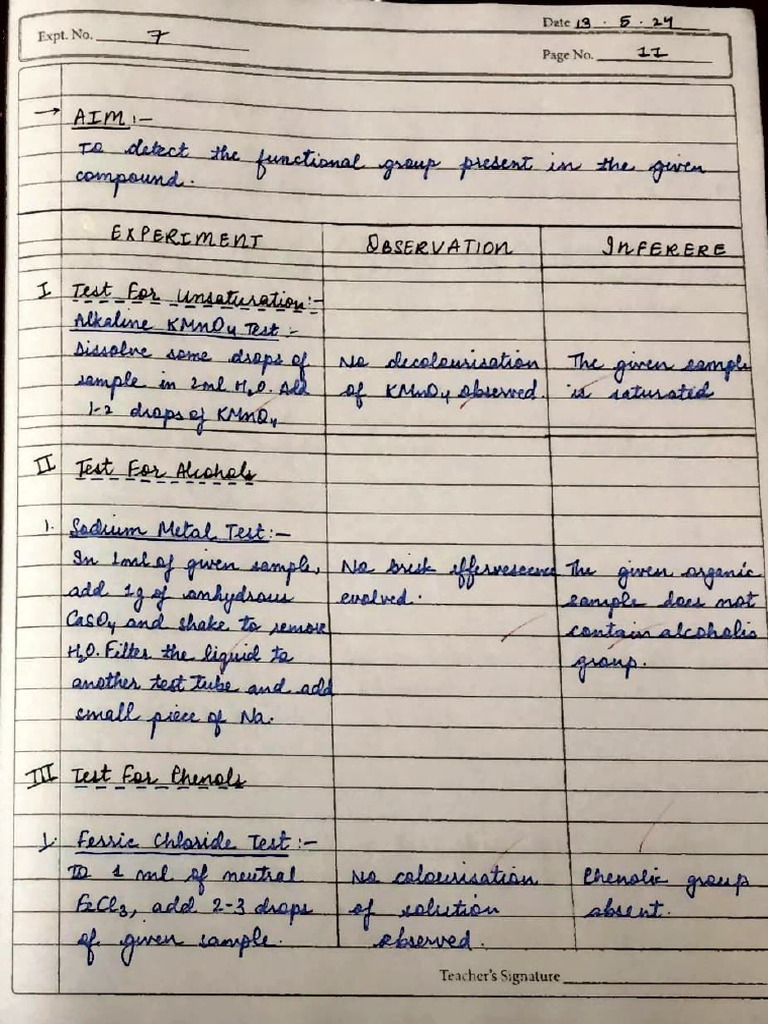 Date 13 . 5 . 24
Expt. No. 7
Page No. 11
→ AIM :-
To detect the functional group present in the given
compound.
EXPERIMENT OBSERVATION INFERERE
I Test For Unsaturation:-
Alkaline KMnO₄ Test :-
Dissolve some drops of No decolourisation The given sample
sample in 2ml H₂O. Add of KMnO₄ observed. is saturated
1-2 drops of KMnO₄
II Test For Alcohols
1. Sodium Metal Test:-
In 1ml of given sample, No brisk effervescence The given organic
add 1g of anhydrous evolved. sample does not
CaSO₄ and shake to remove contain alcoholic
H₂O. Filter the liquid to group.
another test tube and add
small piece of Na.
III Test For Phenols
1. Ferric Chloride Test:-
To 1 ml of neutral No colourisation Phenolic group
FeCl₃, add 2-3 drops of solution absent.
of given sample. observed.
Teacher's Signature